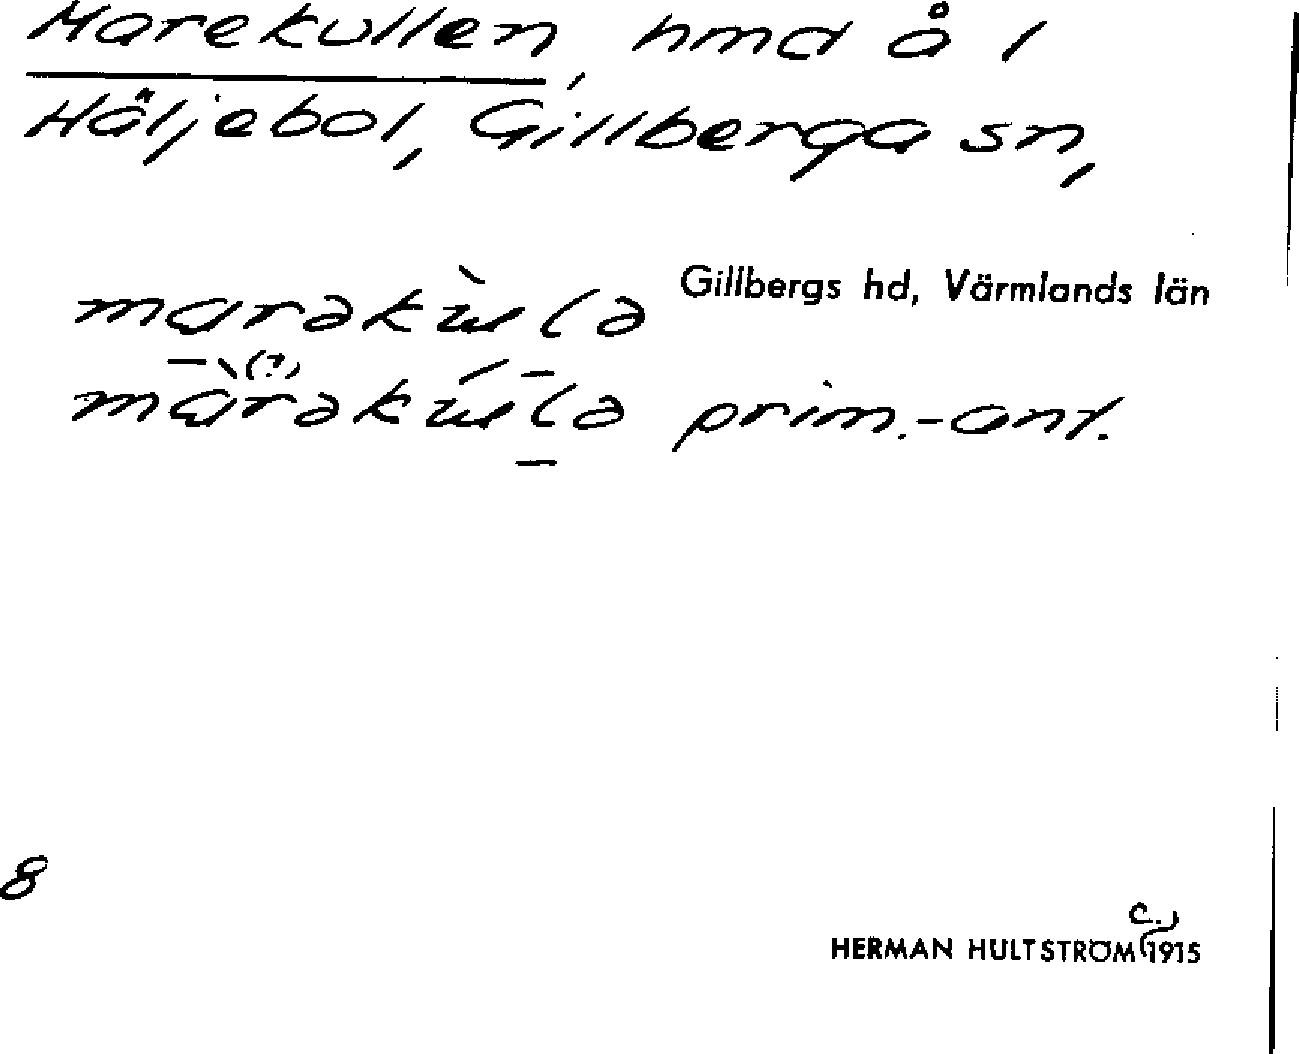 Marekullen, hmd å 1
Häljebol, Gillberga sn,
Gillbergs hd, Värmlands län
prim.-ant.
8
c.
HERMAN HULTSTRÖM 1915